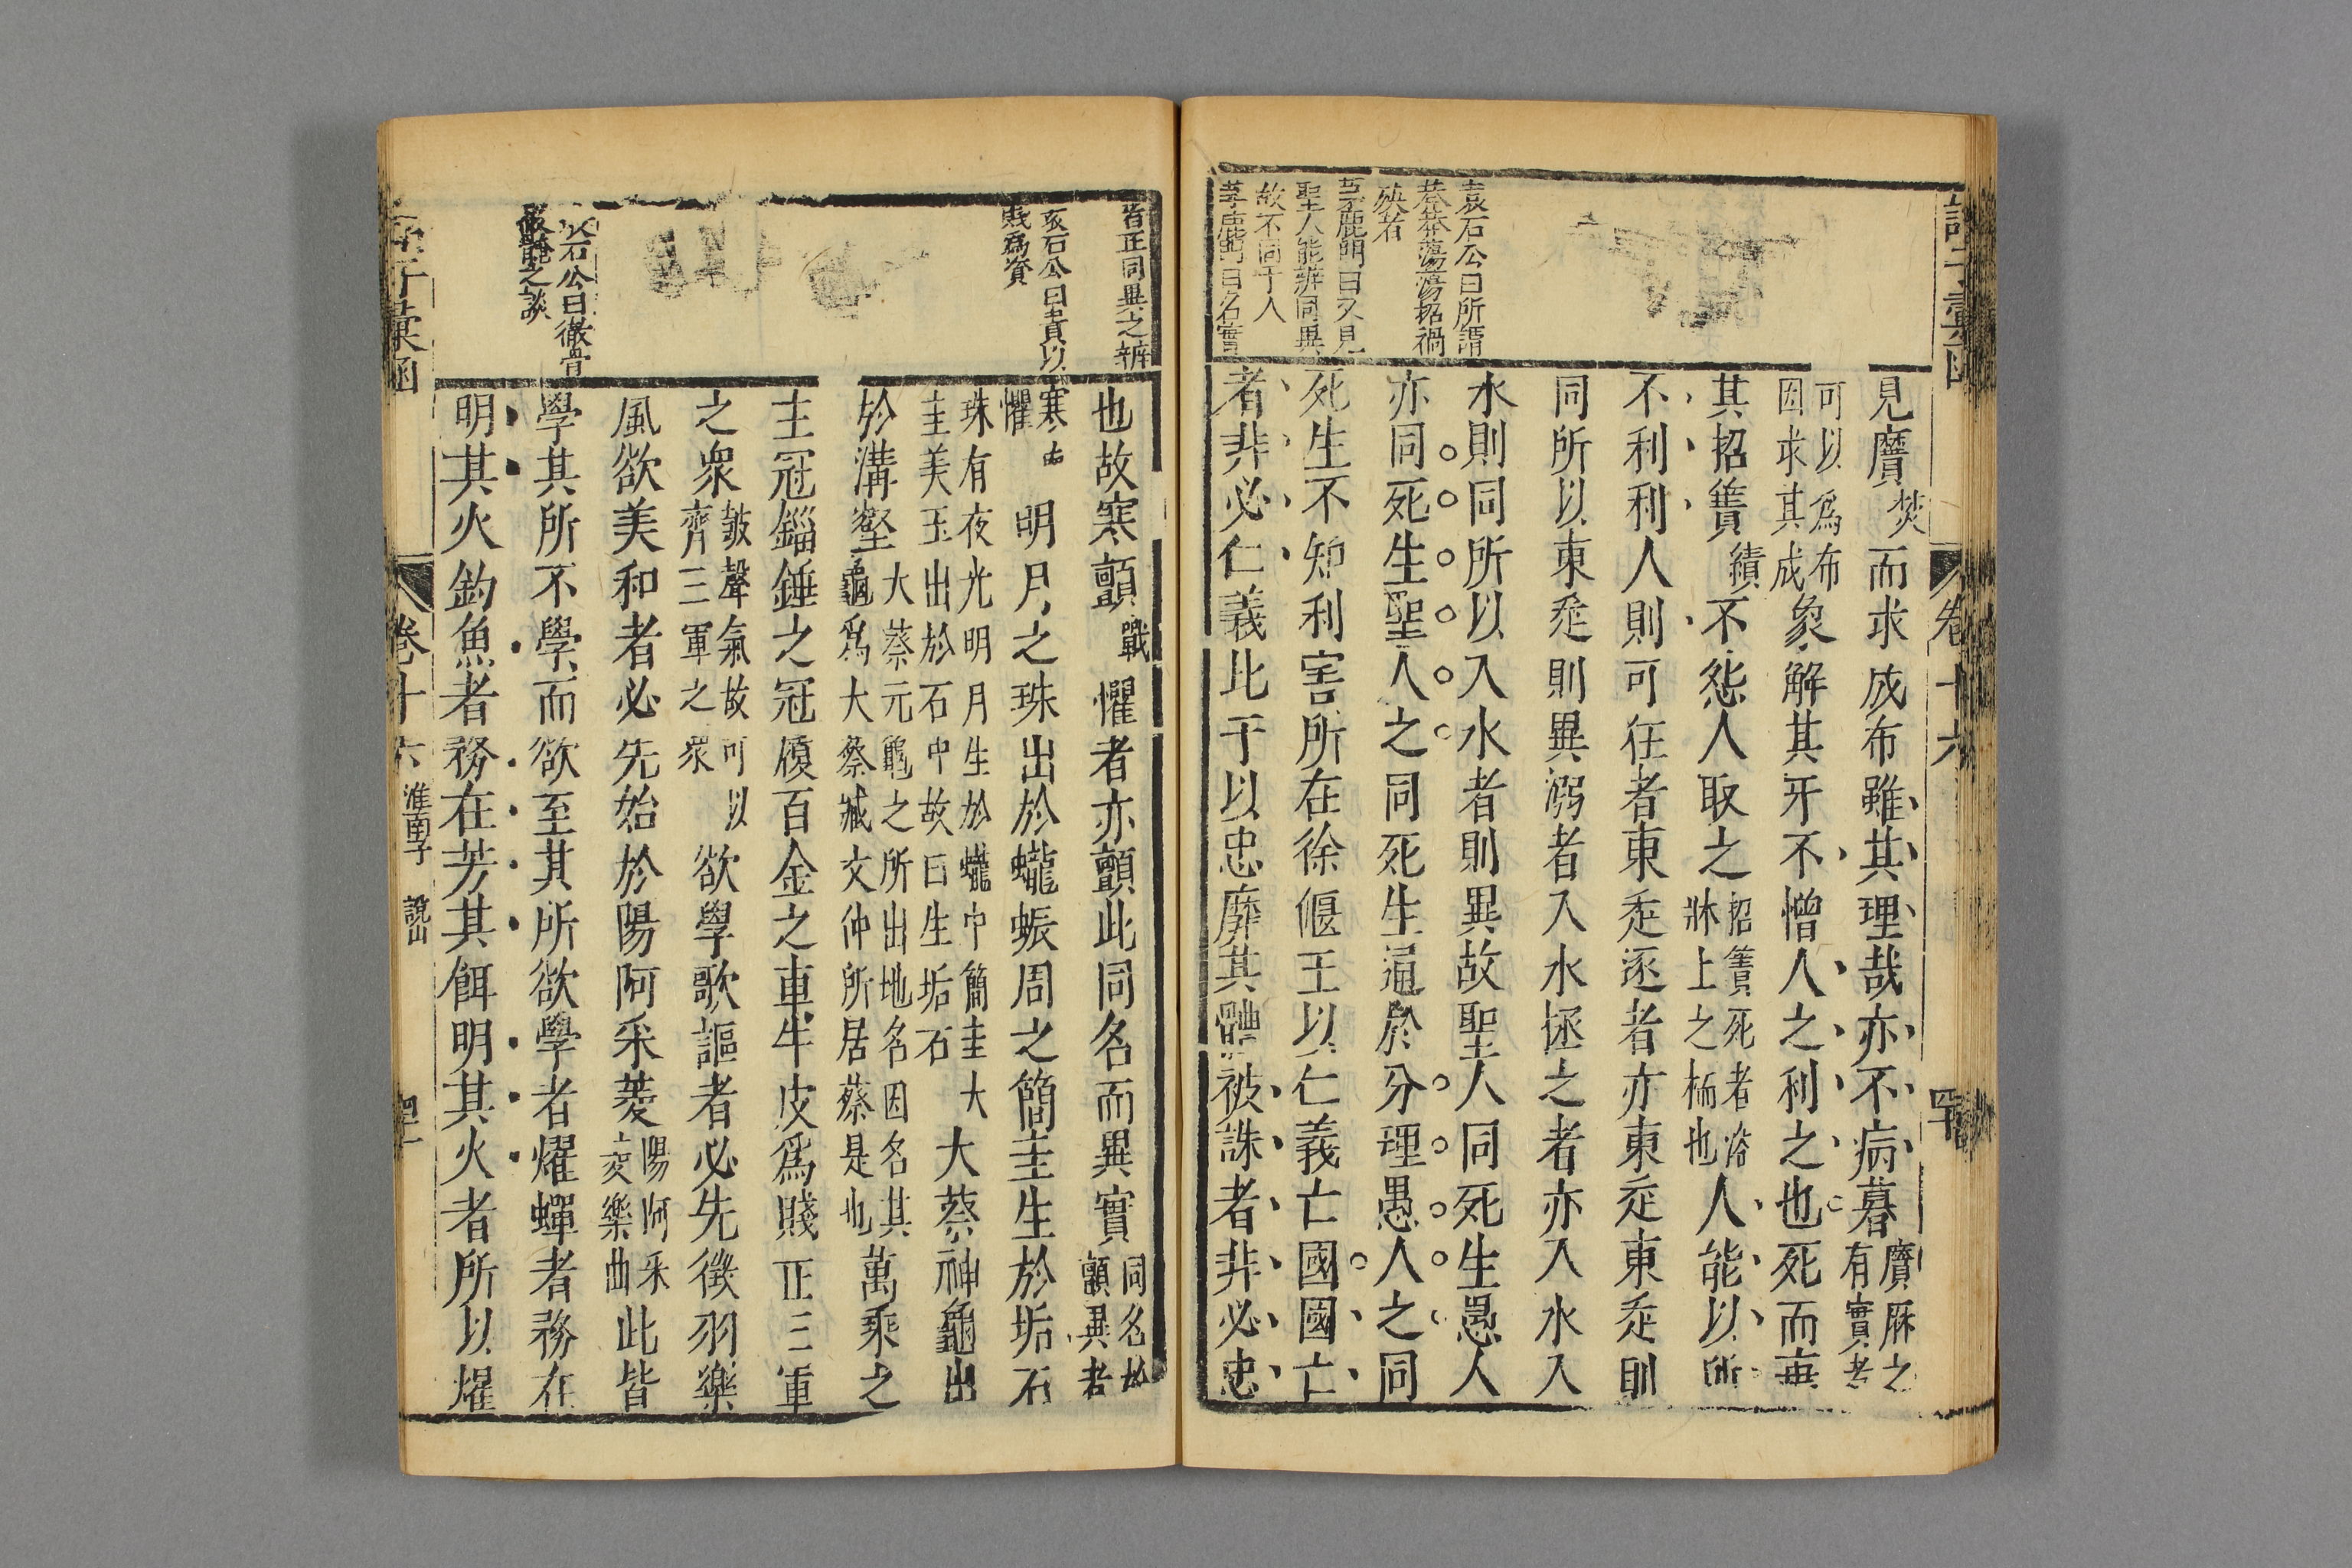 見黂焚而求成布雖其理哉亦不病暮黂麻之有實者
可以爲布因求其成象解其牙不憎人之利之也死而棄
其招簀績不怨人取之招簀死者浴牀上之栭也人能以所
不利利人則可狂者東走逐者亦東走東走則
同所以東走則異溺者入水拯之者亦入水入
水則同所以入水者則異故聖人同死生愚人
亦同死生聖人之同死生通於分理愚人之同
死生不知利害所在徐偃王以仁義亡國國亡
者非必仁義比干以忠靡其體被誅者非必忠
袁石公曰所謂
莽莽蕩蕩招禍
殃者
茅鹿門曰又見
聖人能辨同異
故不同于人
茅鹿門曰名實
卷十六
皆正同異之辨
袁石公曰貴以
賤爲資
袁石公曰徹骨
徹髓之談
也故寒顫戰懼者亦顫此同名而異實同名於顫異者
寒與懼明月之珠出於蠬蜄周之簡圭生於垢石
珠有夜光明月生於蠬中簡圭大圭美玉出於石中故曰生垢石大蔡神龜出
於溝壑大蔡元龜之所出地名因名其龜爲大蔡臧文仲所居蔡是也萬乘之
主冠錙錘之冠履百金之車牛皮爲賤正三軍
之衆皷聲氣故可以齊三軍之衆欲學歌謳者必先徵羽樂
風欲美和者必先始於陽阿采菱陽阿采菱樂曲此皆
學其所不學而欲至其所欲學者燿蟬者務在
明其火釣魚者務在芳其餌明其火者所以燿
諸子彙函
卷十六
淮南子
說山